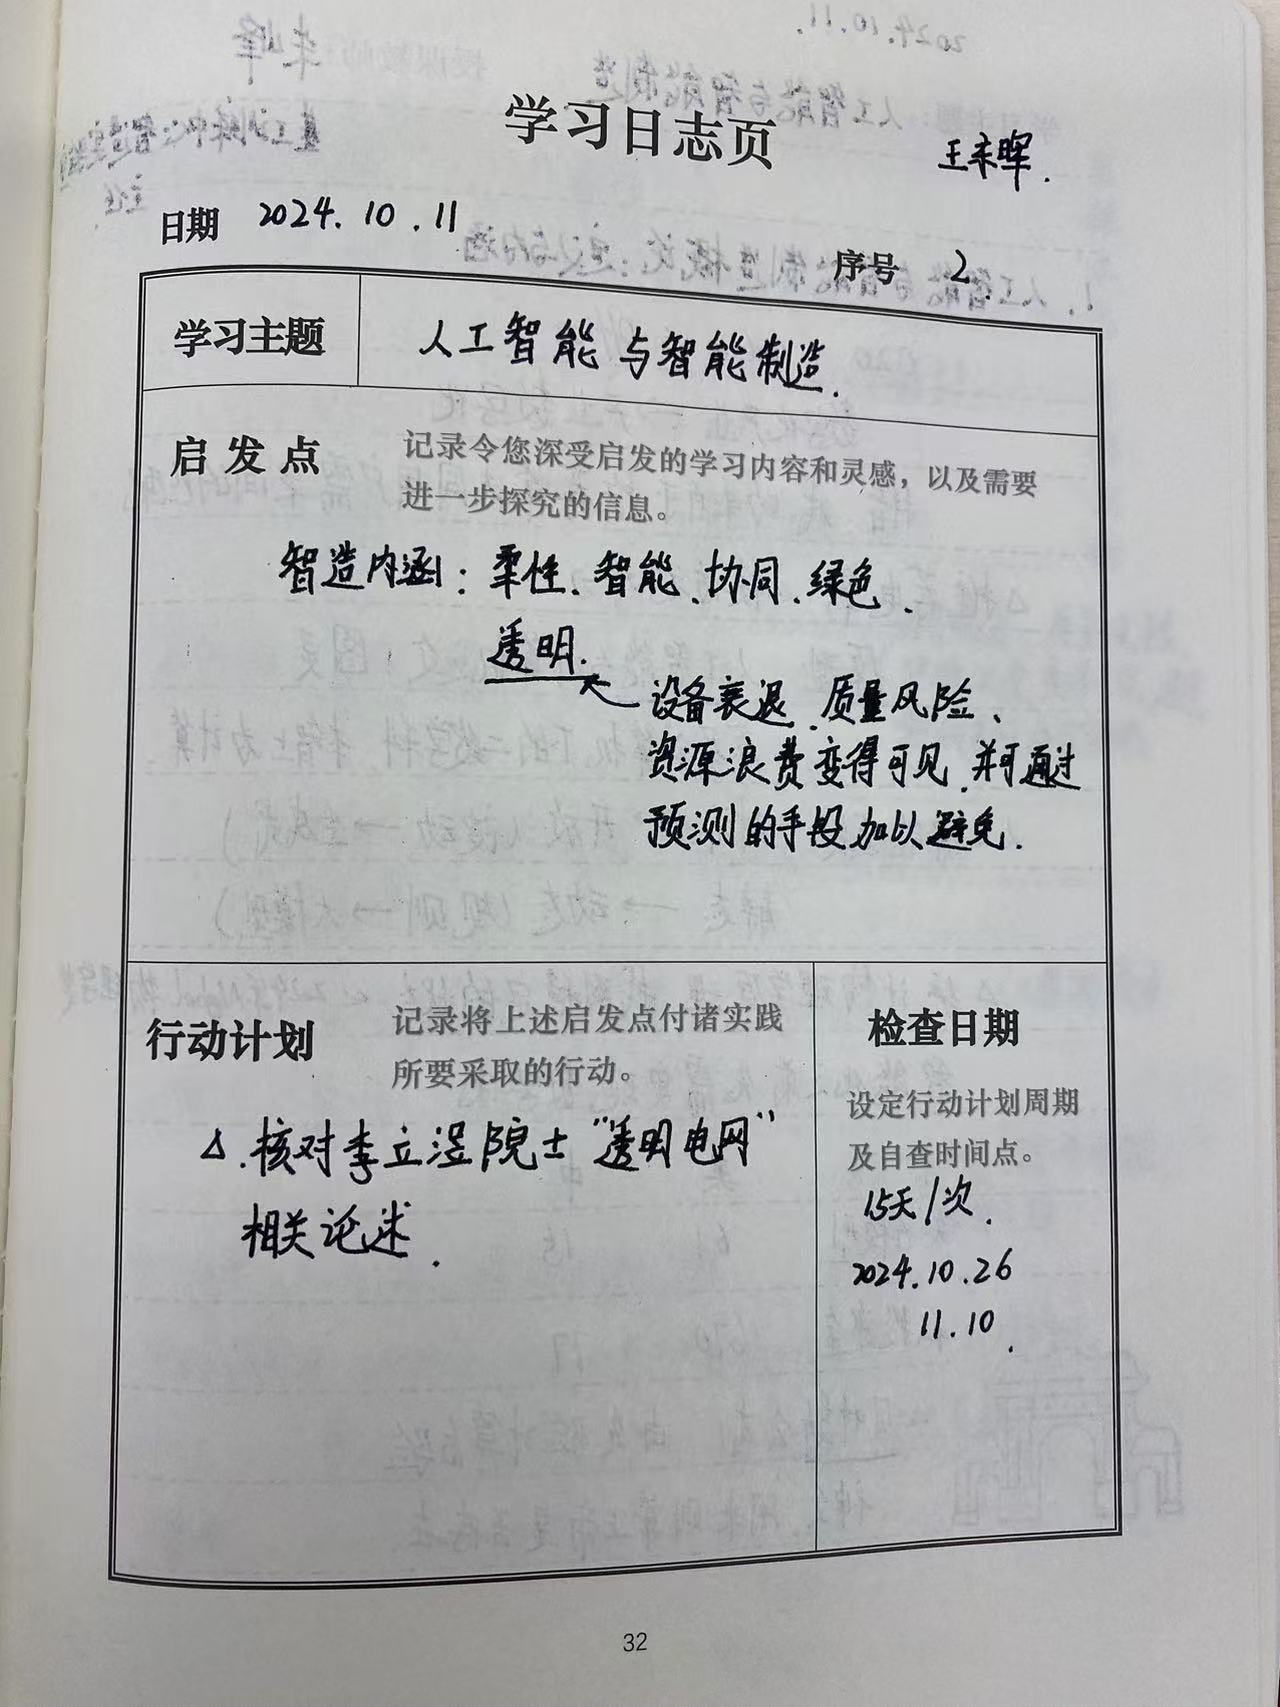 学习日志页
王末晖.
日期 2024.10.11
序号 2.
学习主题 人工智能与智能制造.
启发点 记录令您深受启发的学习内容和灵感，以及需要
进一步探究的信息。
智造内涵：柔性、智能、协同、绿色.
透明.
设备衰退、质量风险、
资源浪费变得可见、并可通过
预测的手段加以避免.
行动计划 记录将上述启发点付诸实践
所要采取的行动。
△.核对李立浧院士“透明电网”
相关论述.
检查日期
设定行动计划周期
及自查时间点。
15天/次.
2024.10.26
11.10.
32